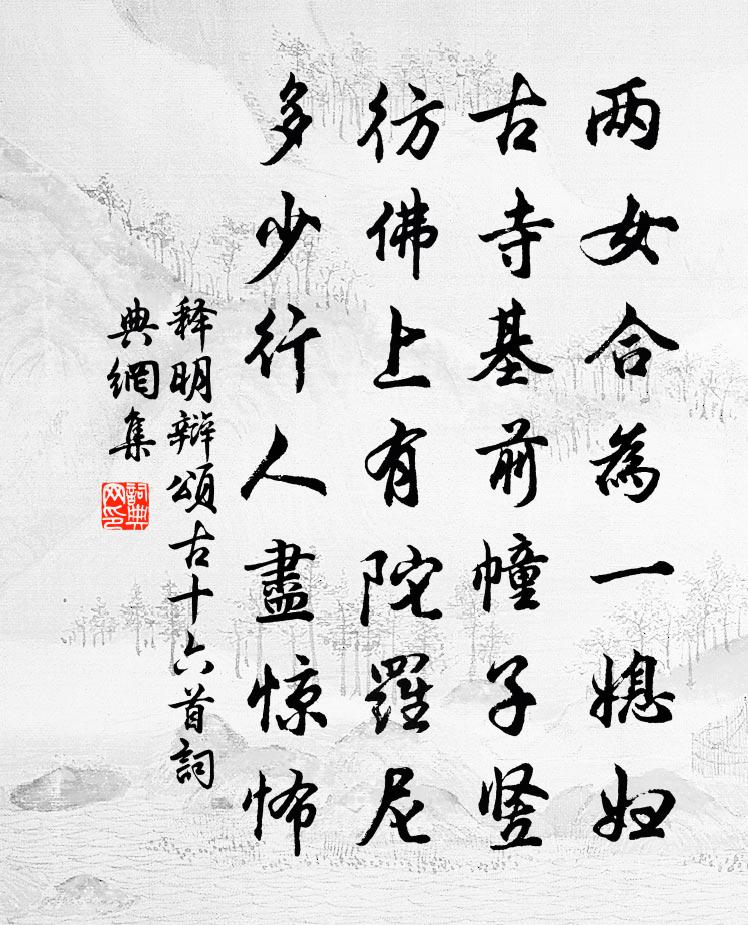 两女合為一媳妇
古寺基前幢子竖
彷佛上有陀羅尼
多少行人盡惊怖
释明辩颂古十六首詞
典網集
詞典
网印